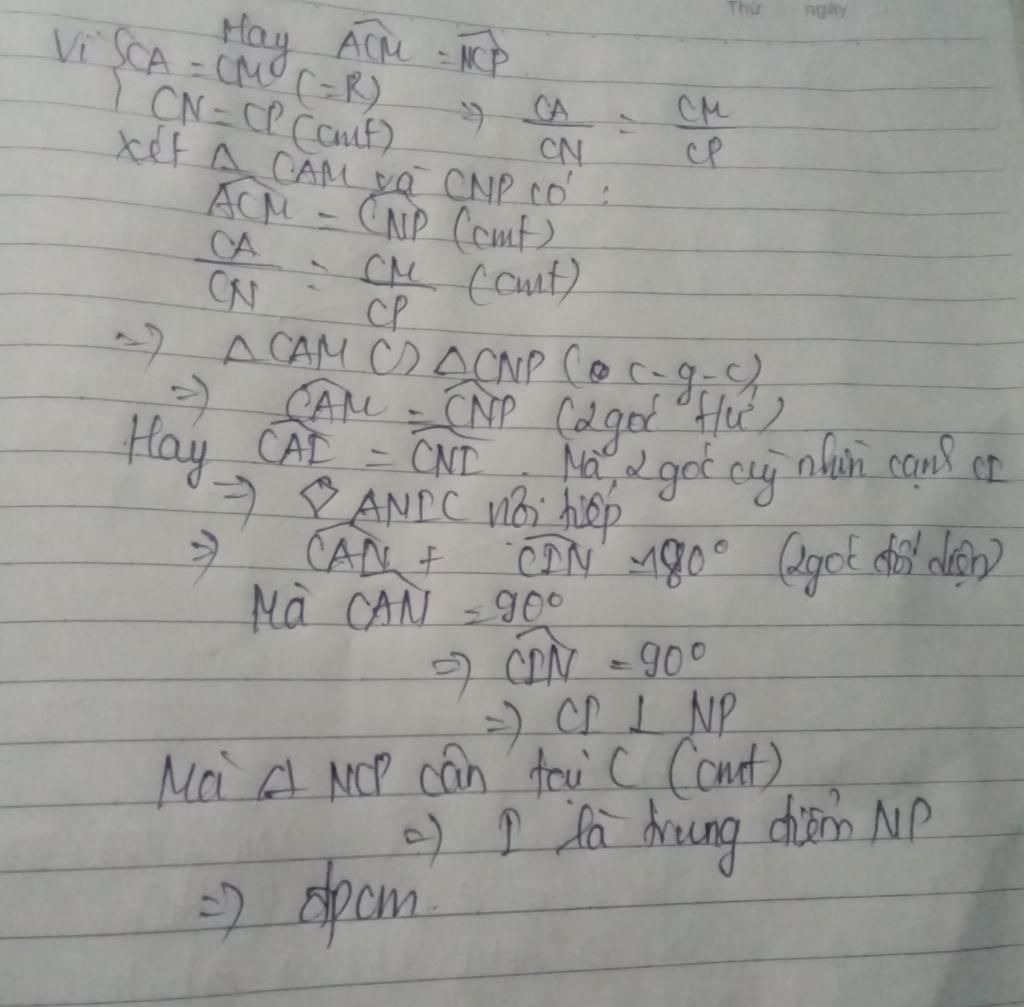 Thứ ngày
Hay ACM = NCP
Vì { CA = CM (=R)
CN = CP (cmt) => CA/CN = CM/CP
xét Δ CAM và CNP có :
ACM = CNP (cmt)
CA/CN = CM/CP (cmt)
=> Δ CAM ∽ Δ CNP (c-g-c)
=> CAM = CNP (2 góc tứ)
Hay CAI = CNI . Mà 2 góc cùng nhìn cạnh CI
=> ◇ ANIC nội tiếp
=> CAN + CIN = 180° (2 góc đối diện)
Mà CAN = 90°
=> CIN = 90°
=> CI ⊥ NP
Mà Δ NCP cân tại C (cmt)
=> I là trung điểm NP
=> đpcm.